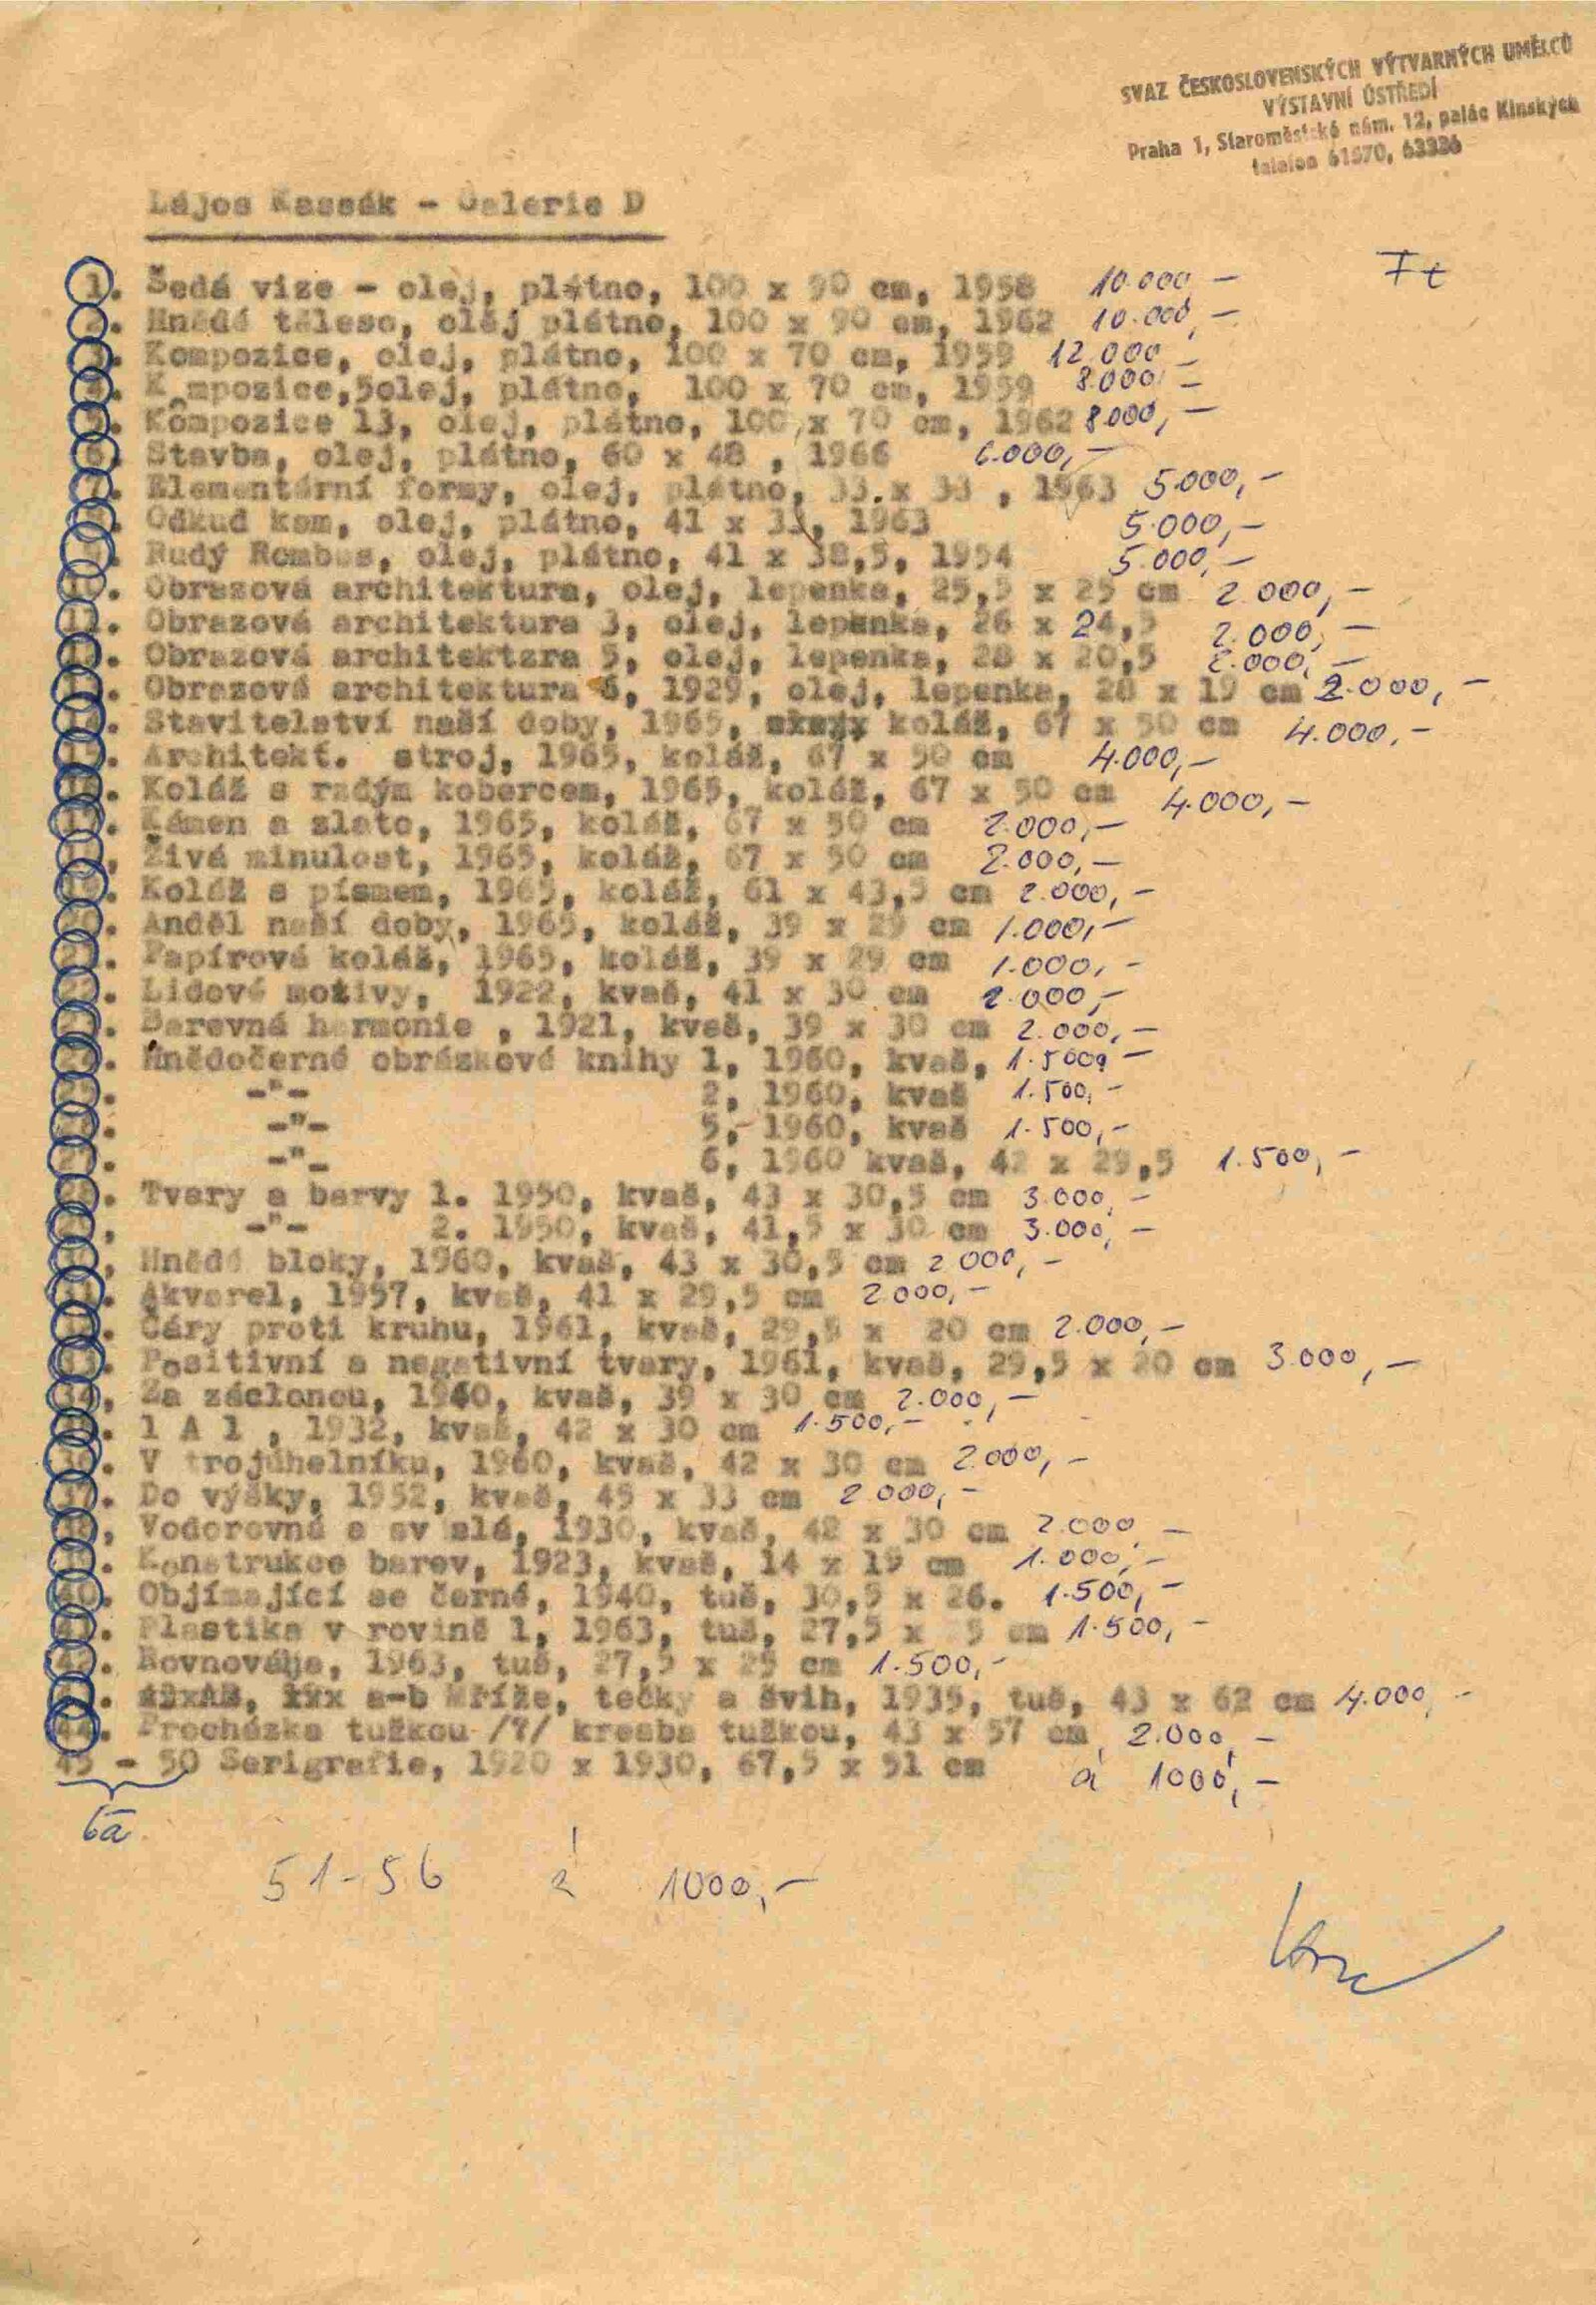 SVAZ ČESKOSLOVENSKÝCH VÝTVARNÝCH UMĚLCŮ
VÝSTAVNÍ ÚSTŘEDÍ
Praha 1, Staroměstské nám. 12, palác Kinských
telefon 61570, 63336
Lájos Kassák - Galerie D
Ft
1. Šedá vize - olej, plátno, 100 x 90 cm, 1958 10.000,-
2. Hnědé těleso, olej plátno, 100 x 90 cm, 1962 10.000,-
3. Kompozice, olej, plátno, 100 x 70 cm, 1959 12.000,-
4. Kompozice,5olej, plátno, 100 x 70 cm, 1959 8.000,-
5. Kompozice 13, olej, plátno, 100 x 70 cm, 1962 8.000,-
6. Stavba, olej, plátno, 60 x 48 , 1966 6.000,-
7. Elementární formy, olej, plátno, 33.x 33 , 1963 5.000,-
8. Odkud kam, olej, plátno, 41 x 33, 1963 5.000,-
9. Rudý Rombus, olej, plátno, 41 x 38,5, 1954 5.000,-
10. Obrazová architektura, olej, lepenka, 25,5 x 25 cm 2.000,-
11. Obrazová architektura 3, olej, lepenka, 26 x 24,5 2.000,-
12. Obrazová architektzra 5, olej, lepenka, 28 x 20,5 2.000,-
13. Obrazová architektura 6, 1929, olej, lepenka, 28 x 19 cm 2.000,-
14. Stavitelství naší doby, 1965, koláž, 67 x 50 cm 4.000,-
15. Architekt. stroj, 1965, koláž, 67 x 50 cm 4.000,-
16. Koláž s rzdým kobercem, 1965, koláž, 67 x 50 cm 4.000,-
17. Kámen a zlato, 1965, koláž, 67 x 50 cm 2.000,-
18. Živá minulost, 1965, koláž, 67 x 50 cm 2.000,-
19. Koláž s písmem, 1965, koláž, 61 x 43,5 cm 2.000,-
20. Anděl naší doby, 1965, koláž, 39 x 29 cm 1.000,-
21. Papírová koláž, 1965, koláž, 39 x 29 cm 1.000,-
22. Lidové motivy, 1922, kvaš, 41 x 30 cm 2.000,-
23. Barevná harmonie , 1921, kvaš, 39 x 30 cm 2.000,-
24. Hnědočerné obrázkové knihy 1, 1960, kvaš, 1.500,-
25. -"- 2, 1960, kvaš 1.500,-
26. -"- 5, 1960, kvaš 1.500,-
27. -"- 6, 1960 kvaš, 42 x 29,5 1.500,-
28. Tvary a barvy 1. 1950, kvaš, 43 x 30,5 cm 3.000,-
29, -"- 2. 1950, kvaš, 41,5 x 30 cm 3.000,-
30, Hnědé bloky, 1960, kvaš, 43 x 30,5 cm 2.000,-
31. Akvarel, 1957, kvaš, 41 x 29,5 cm 2.000,-
32. Čáry proti kruhu, 1961, kvaš, 29,5 x 20 cm 2.000,-
33. Positivní a negativní tvary, 1961, kvaš, 29,5 x 20 cm 3.000,-
34, Za záclonou, 1940, kvaš, 39 x 30 cm 2.000,-
35. 1 A 1 , 1932, kvaš, 42 x 30 cm 1.500,-
36. V trojúhelníku, 1960, kvaš, 42 x 30 cm 2.000,-
37. Do výšky, 1952, kvaš, 45 x 33 cm 2.000,-
38, Vodorovná a sv slá, 1930, kvaš, 42 x 30 cm 2.000,-
39. Konstrukce barev, 1923, kvaš, 14 x 19 cm 1.000,-
40. Objímající se černé, 1940, tuš, 30,5 x 26. 1.500,-
41. Plastika v rovině 1, 1963, tuš, 27,5 x 5 cm 1.500,-
42. Rovnováha, 1963, tuš, 27,5 x 25 cm 1.500,-
43. a-b Mříže, tečky a švih, 1935, tuš, 43 x 62 cm 4.000,-
44. Procházka tužkou /?/ kresba tužkou, 43 x 57 cm 2.000,-
45 - 50 Serigrafie, 1920 x 1930, 67,5 x 51 cm á 1000,-
51-56 á 1000,-